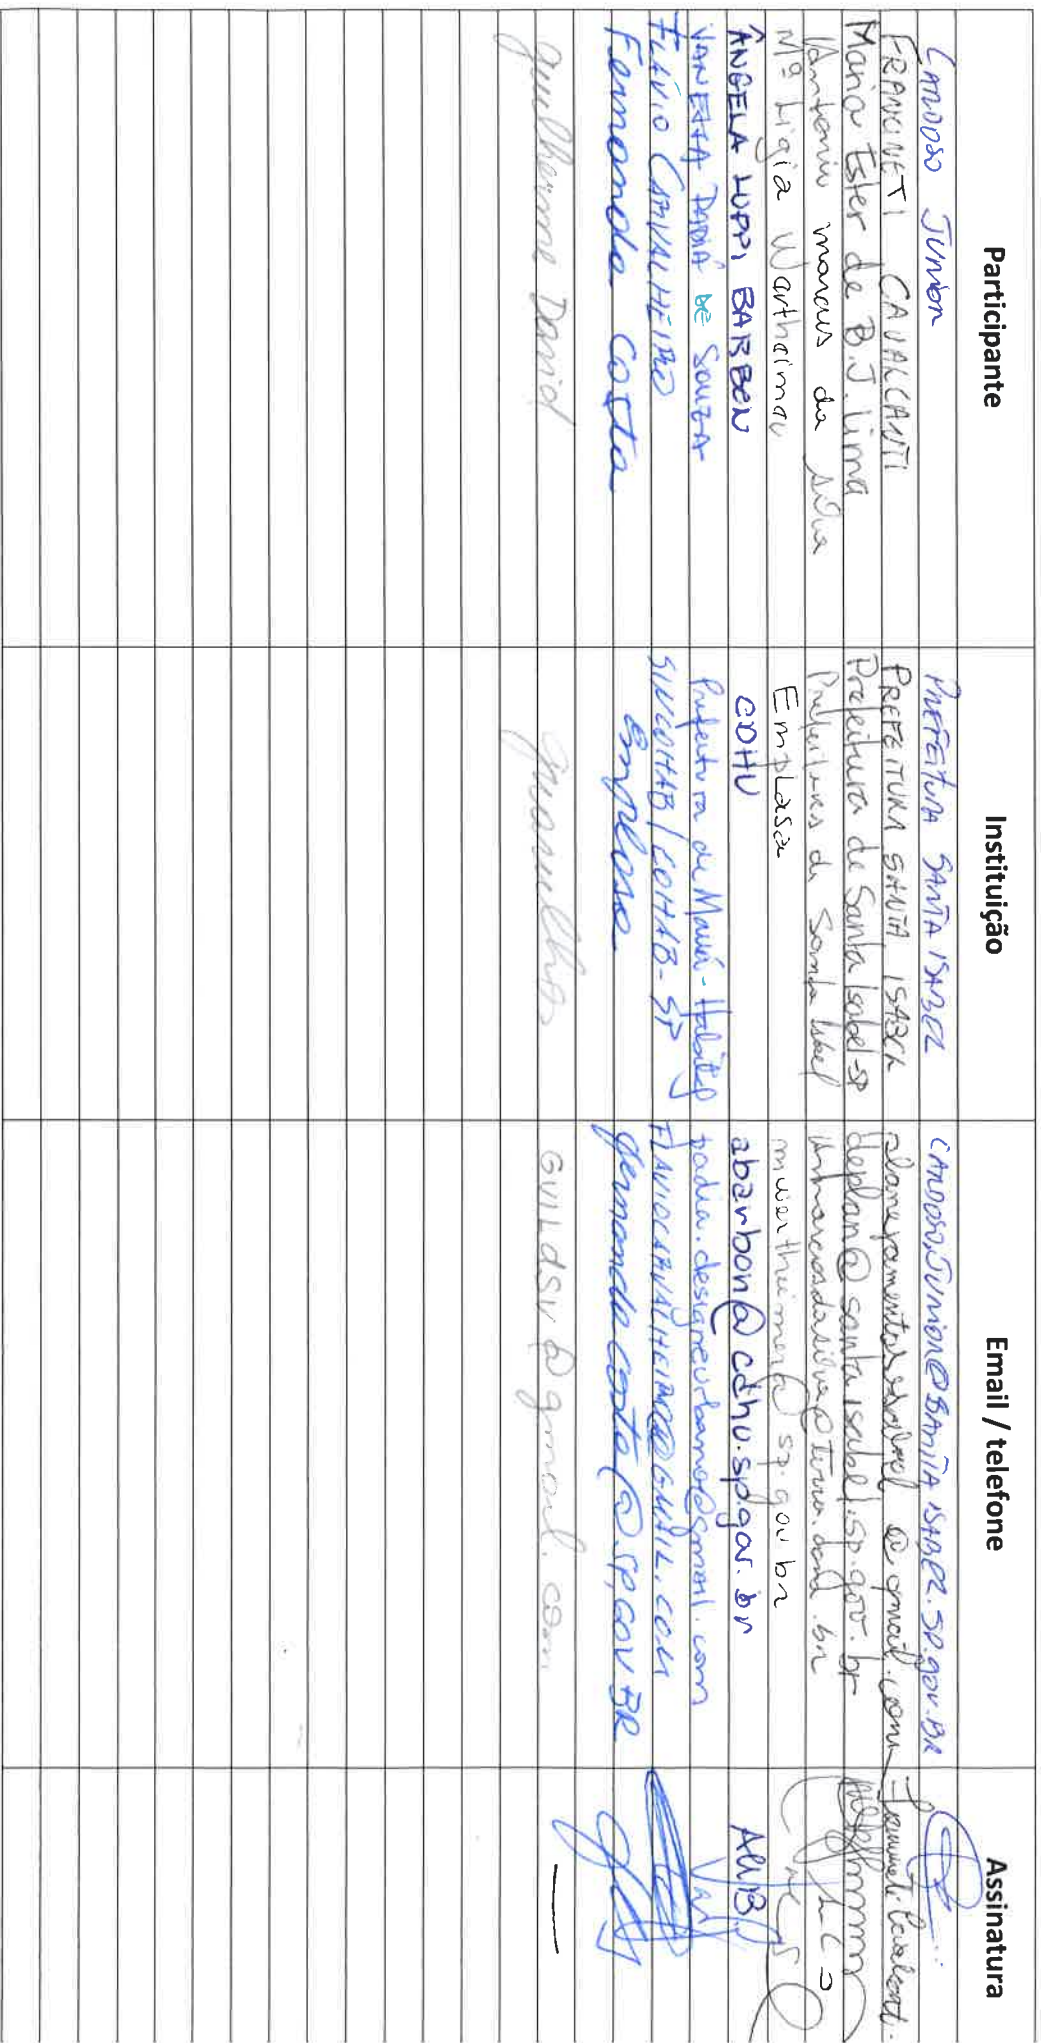 Participante Instituição Email / telefone Assinatura
CARDOSO JUNIOR PREFEITURA SANTA ISABEL CARDOSO.JUNIOR@SANTA ISABEL.SP.gov.BR
FRANCINETI CAVALCANTI PREFEITURA SANTA ISABEL @gmail.com Francineti Cavalcanti
Maria Ester de B.J. Lima Prefeitura de Santa Isabel-SP deplan@santaisabel.sp.gov.br
Antonio marcos da silva Prefeitura de Santa Isabel antmarcosdasilva@terra.com.br
Mª Ligia Wertheimer Emplasa mwertheimer@sp.gov.br
ÂNGELA LUPPI BARBON CDHU abarbon@cdhu.sp.gov.br ALB
VANESSA PADIÁ DE SOUZA Prefeitura de Mauá - Habitação padia.designeurbano@gmail.com
FLÁVIO CARVALHEIRO SINCOHAB/COHAB-SP FLAVIOCARVALHEIRO@GMAIL.COM
Fernanda Costa Emplasa fernandacosta@SP.GOV.BR
Guilherme David Guarulhos GUILDSV@gmail.com —